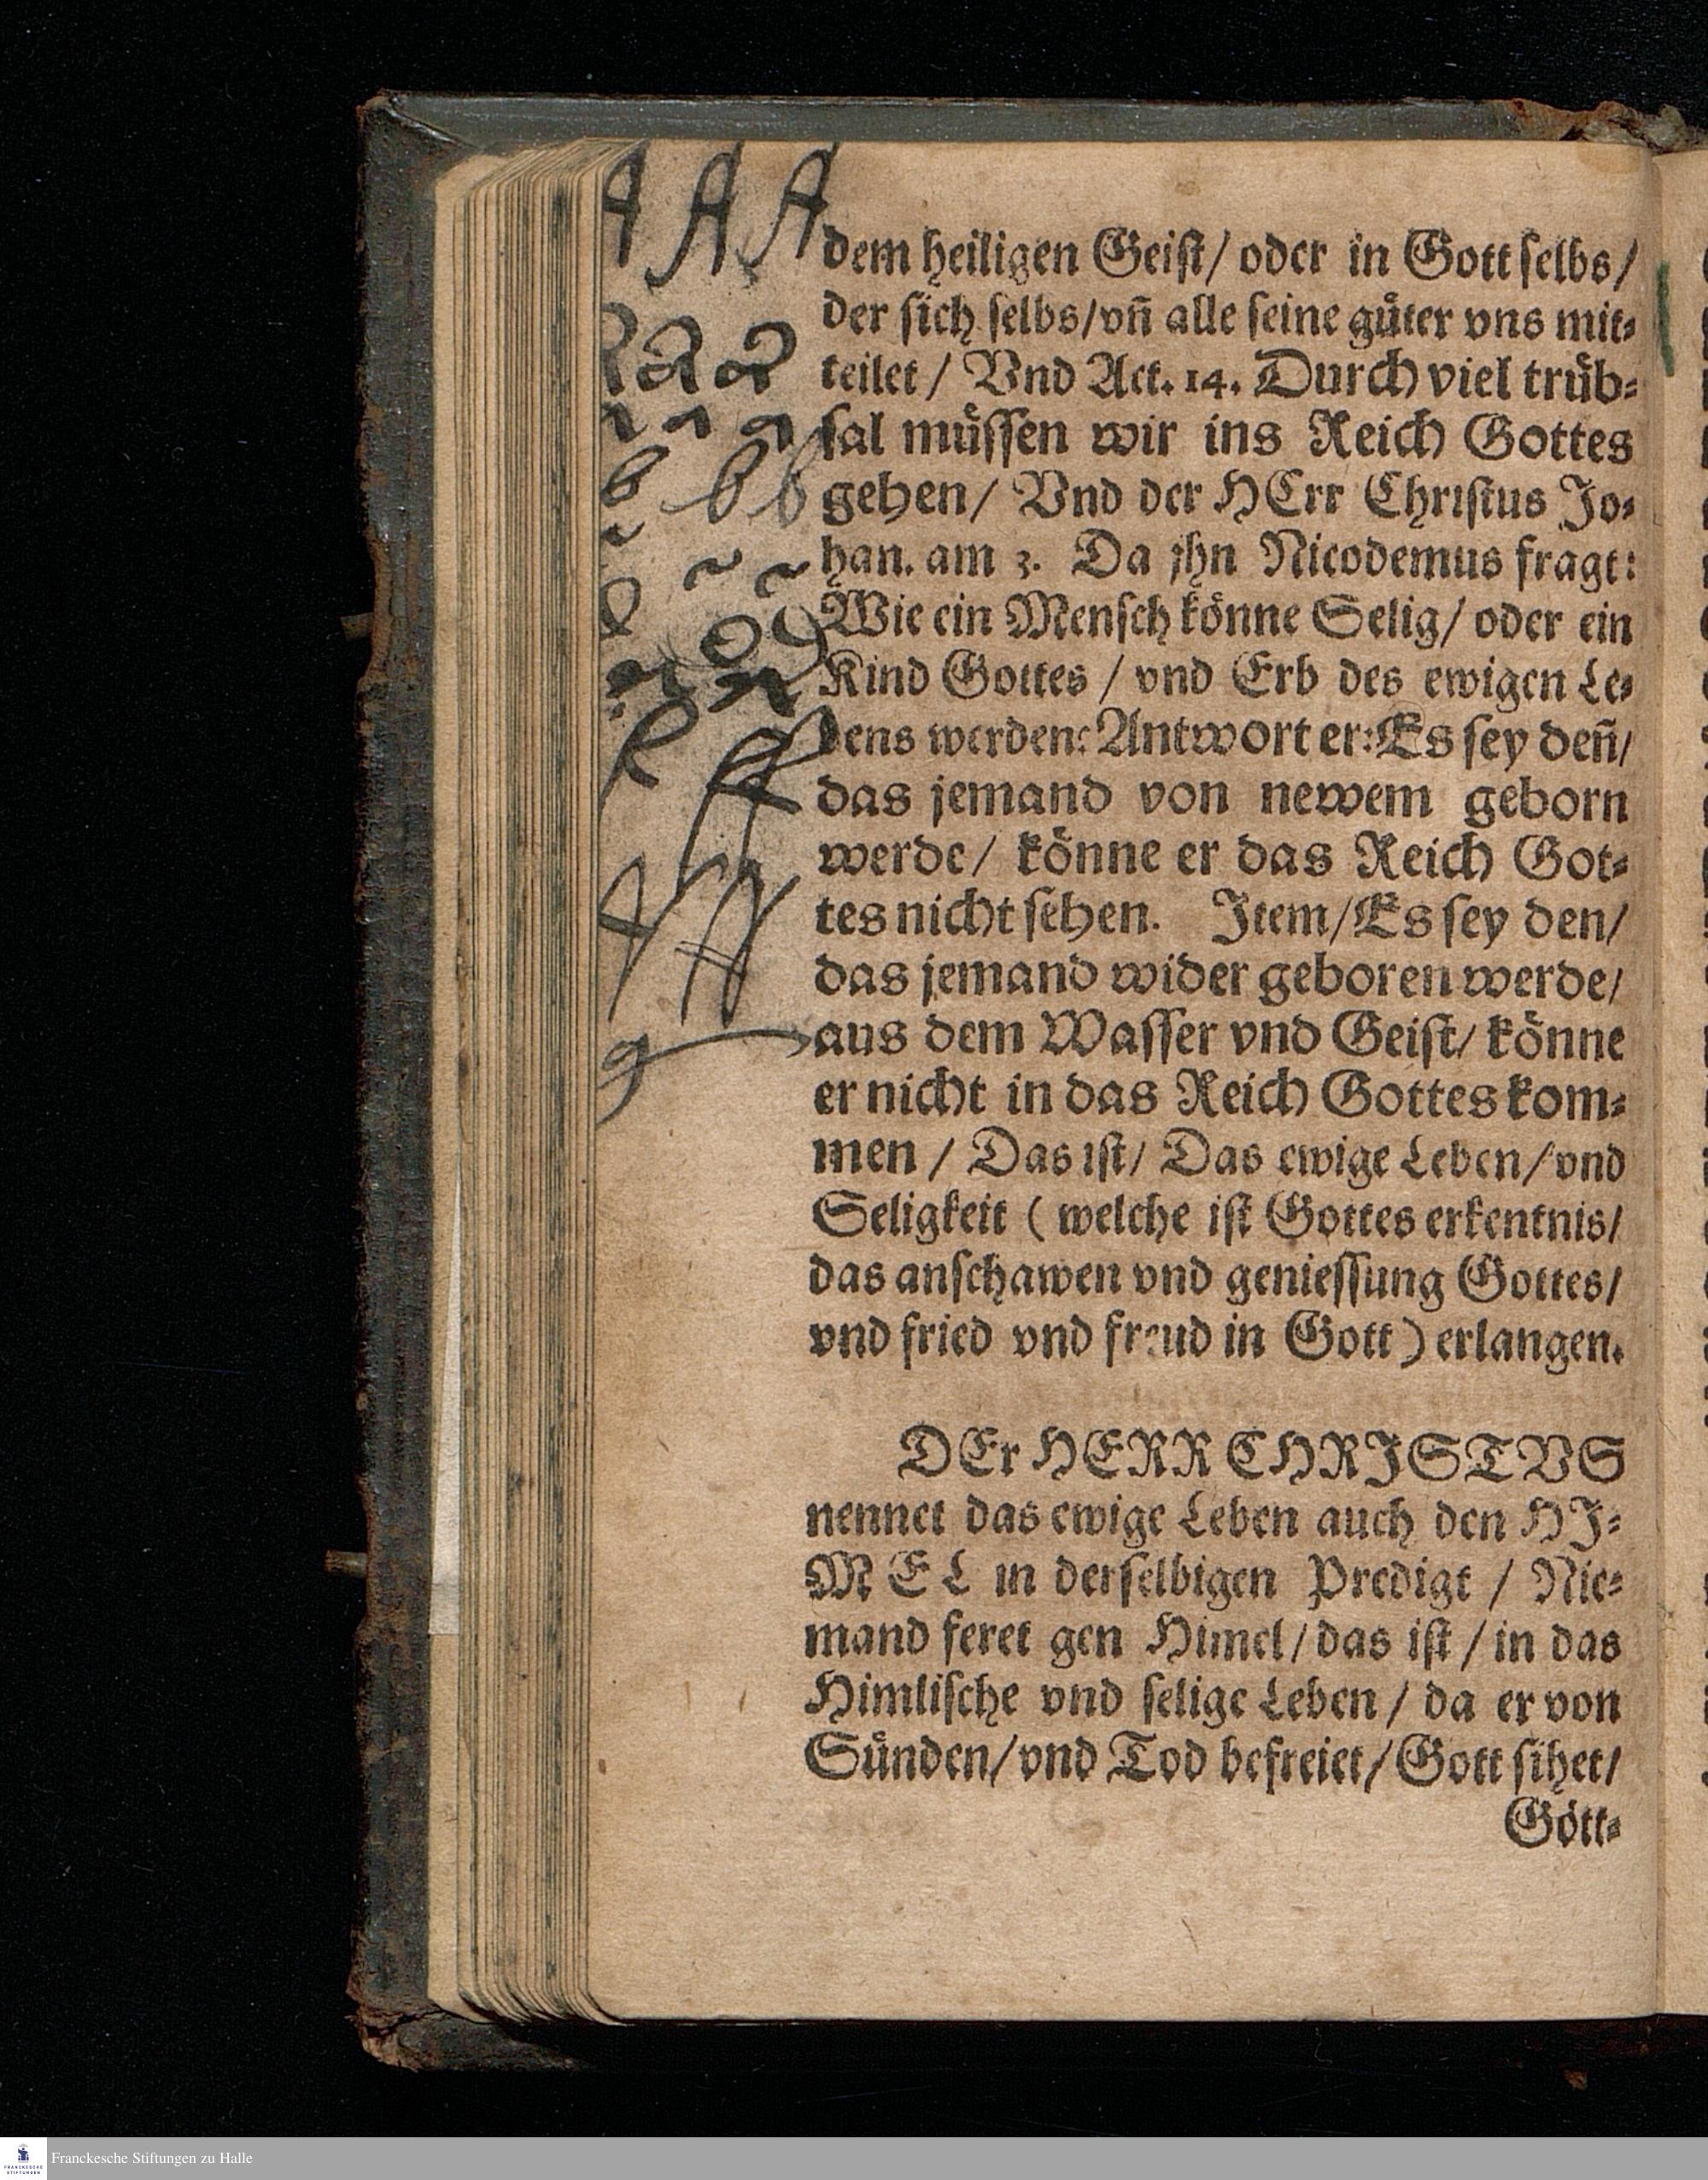 A A A
dem heiligen Geiſt/ oder in Gott ſelbs/
der ſich ſelbs/vñ alle ſeine guͤter vns mit⸗
teilet / Vnd Act. 14. Durch viel truͤb⸗
ſal muͤſſen wir ins Reich Gottes
gehen/ Vnd der HErr Chriſtus Jo⸗
han. am 3. Da jhn Nicodemus fragt:
Wie ein Menſch koͤnne Selig/ oder ein
Kind Gottes / vnd Erb des ewigen Le⸗
bens werden: Antwort er: Es ſey deñ/
das jemand von newem geborn
werde/ koͤnne er das Reich Got⸗
tes nicht ſehen. Item/ Es ſey den/
das jemand wider geboren werde/
aus dem Waſſer vnd Geiſt/ koͤnne
er nicht in das Reich Gottes kom⸗
men / Das iſt/ Das ewige Leben/ vnd
Seligkeit ( welche iſt Gottes erkentnis/
das anſchawen vnd genieſſung Gottes/
vnd fried vnd freud in Gott ) erlangen.
DEr HERR CHRISTVS
nennet das ewige Leben auch den HI⸗
MEL in derſelbigen Predigt / Nie⸗
mand feret gen Himel/ das iſt / in das
Himliſche vnd ſelige Leben / da er von
Suͤnden/ vnd Tod befreiet/ Gott ſihet/
Goͤtt⸗
Franckesche Stiftungen zu Halle